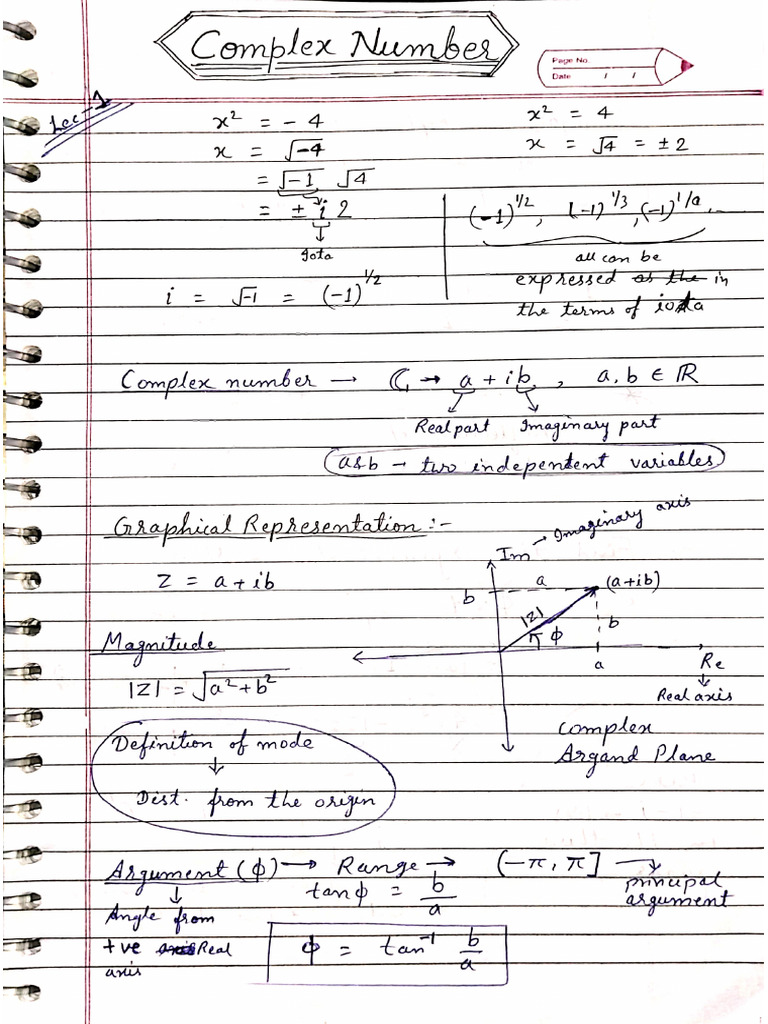 Complex Number
Page No.
Date / /
Lec-1
x² = - 4
x = √-4
= √-1 √4
= ± i 2
iota
i = √-1 = (-1)^1/2
x² = 4
x = √4 = ± 2
(-1)^1/2, (-1)^1/3, (-1)^1/a,
all can be
expressed as the in
the terms of iota
Complex number → ℂ → a + ib, a, b ∈ ℝ
Real part Imaginary part
a & b → two independent variables
Graphical Representation :-
Z = a + ib
Magnitude
|Z| = √a² + b²
Definition of mode
↓
Dist. from the origin
Im → Imaginary axis
b a (a+ib)
|Z| ϕ b
a Re
↓
Real axis
Complex
Argand Plane
Argument (ϕ) → Range → (-π, π] → principal
argument
tanϕ = b/a
↓
Angle from
+ve axis Real
axis
ϕ = tan⁻¹ b/a